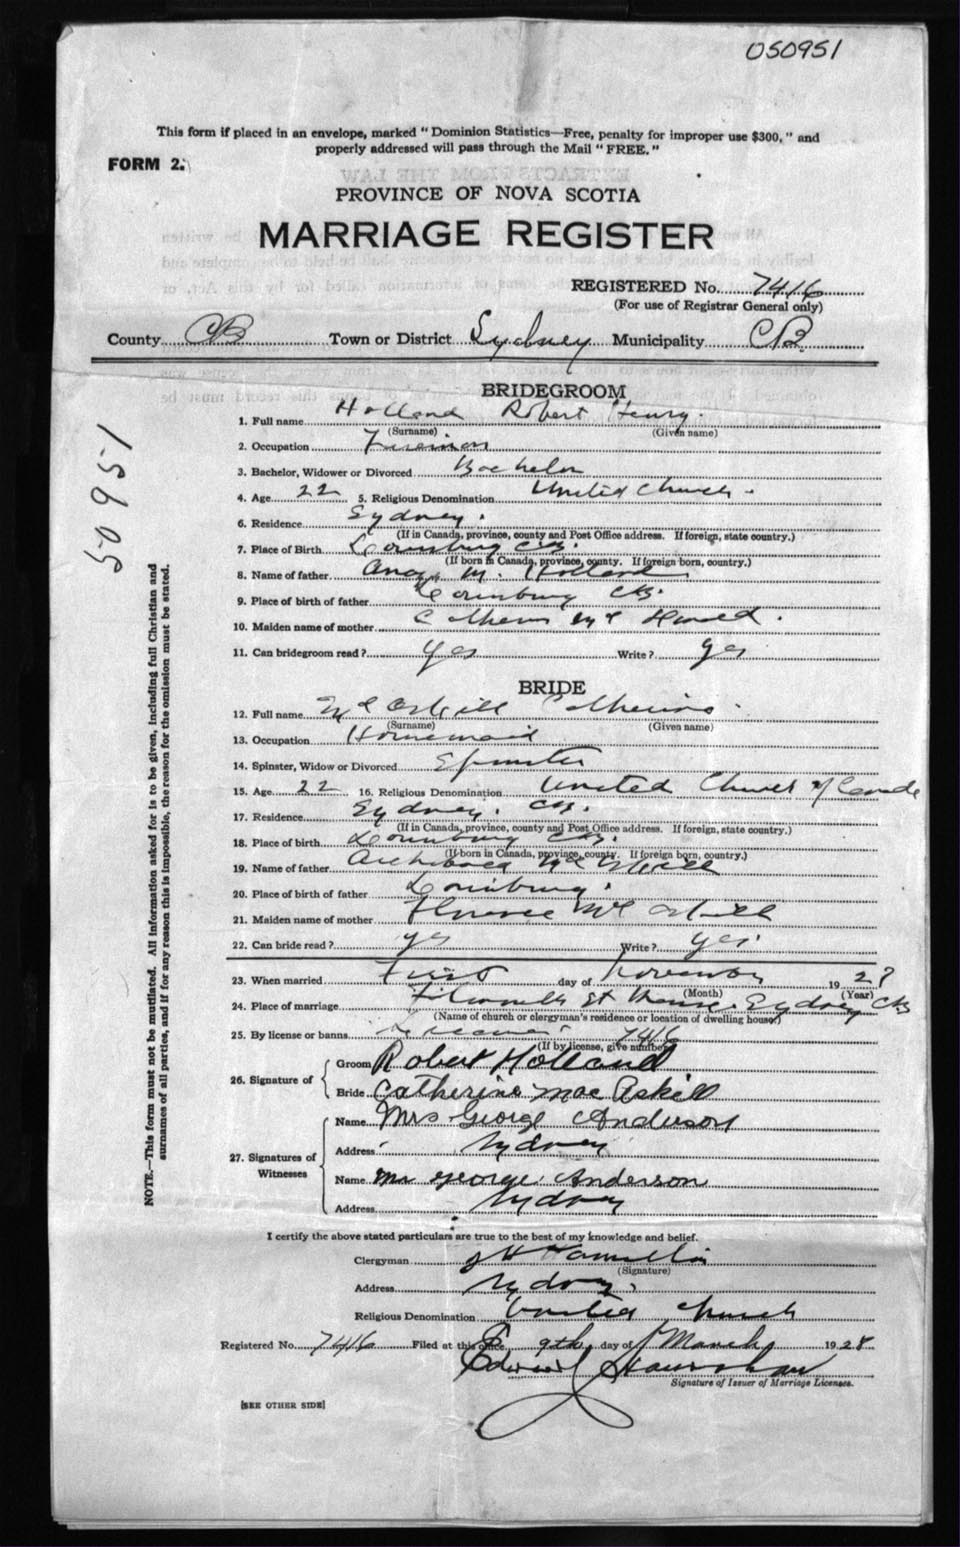 050951
This form if placed in an envelope, marked "Dominion Statistics—Free, penalty for improper use $300," and
properly addressed will pass through the Mail "FREE."
FORM 2.
EXTRACTS FROM THE LAW
PROVINCE OF NOVA SCOTIA
MARRIAGE REGISTER
REGISTERED No. 7416
(For use of Registrar General only)
County CB Town or District Sydney Municipality CB
50951
NOTE.—This form must not be mutilated. All information asked for is to be given, including full Christian and
surnames of all parties, and if for any reason this is impossible, the reason for the omission must be stated.
BRIDEGROOM
1. Full name Holland Robert Henry.
(Surname) (Given name)
2. Occupation Fireman
3. Bachelor, Widower or Divorced Bachelor
4. Age 22 5. Religious Denomination United Church.
6. Residence Sydney.
(If in Canada, province, county and Post Office address. If foreign, state country.)
7. Place of Birth Louisburg CB.
(If born in Canada, province, county. If foreign born, country.)
8. Name of father M. Holland
9. Place of birth of father Louisburg CB.
10. Maiden name of mother
11. Can bridegroom read? Yes Write? Yes
BRIDE
12. Full name Mc Askill Catherine
(Surname) (Given name)
13. Occupation Housemaid
14. Spinster, Widow or Divorced Spinster
15. Age 22 16. Religious Denomination United Church of Canada
17. Residence Sydney. CB.
(If in Canada, province, county and Post Office address. If foreign, state country.)
18. Place of birth Louisburg CB.
(If born in Canada, province, county. If foreign born, country.)
19. Name of father Archibald Mc Askill
20. Place of birth of father Louisburg.
21. Maiden name of mother Florence Mc Askill
22. Can bride read? yes Write? yes.
23. When married First day of November 19
(Month) (Year)
24. Place of marriage St Sydney CB
(Name of church or clergyman's residence or location of dwelling house)
25. By license or banns 7416
(If by license, give number)
26. Signature of
Groom Robert Holland
Bride Catherine Mac Askill
27. Signatures of Witnesses
Name Mrs George Anderson
Address Sydney
Name Mr George Anderson
Address Sydney
I certify the above stated particulars are true to the best of my knowledge and belief.
Clergyman
(Signature)
Address Sydney.
Religious Denomination United Church
Registered No. 7416 Filed at this office 9th day of March 1928
Signature of Issuer of Marriage Licenses.
[SEE OTHER SIDE]